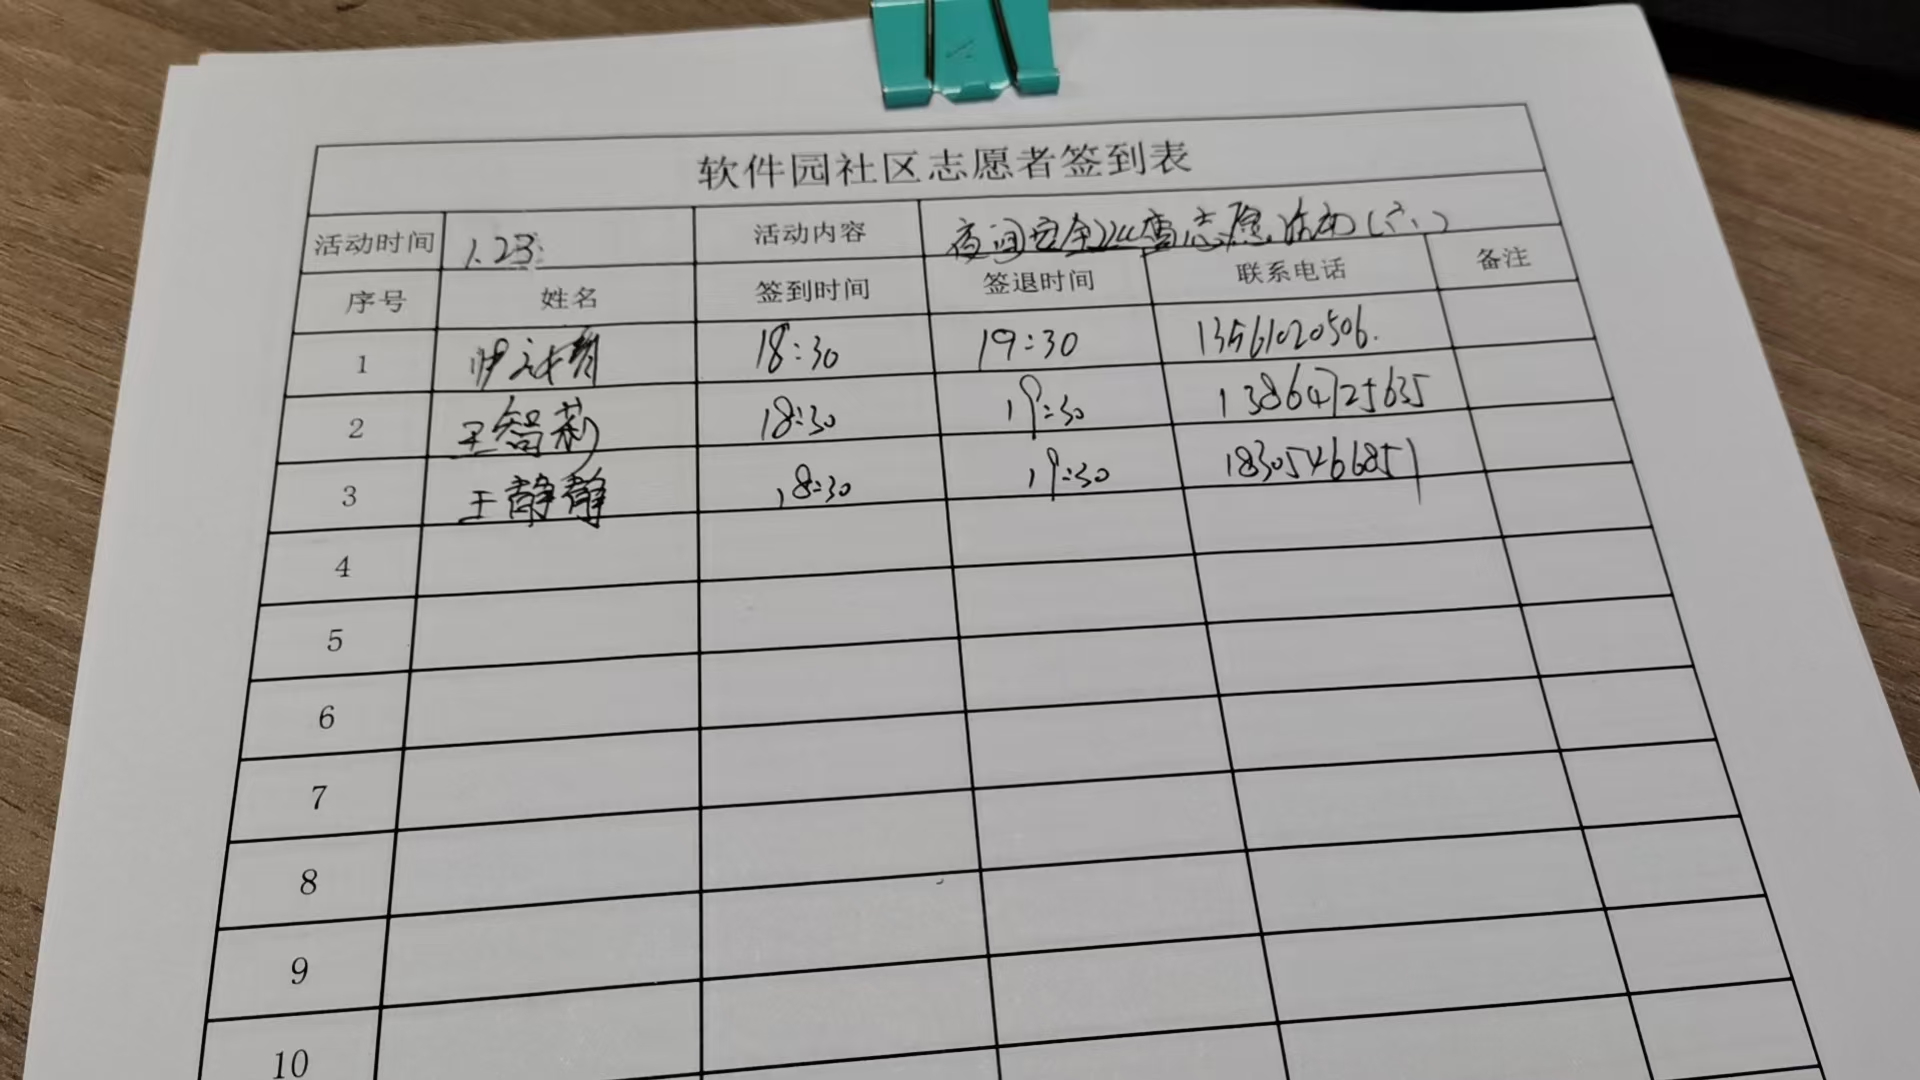 软件园社区志愿者签到表
活动时间 1.23 活动内容 夜间安全巡查志愿活动(六)
序号 姓名 签到时间 签退时间 联系电话 备注
1 18:30 19:30 13561020506.
2 王智莉 18:30 19:30 13864725635
3 王静静 18:30 19:30 18305466851
4
5
6
7
8
9
10